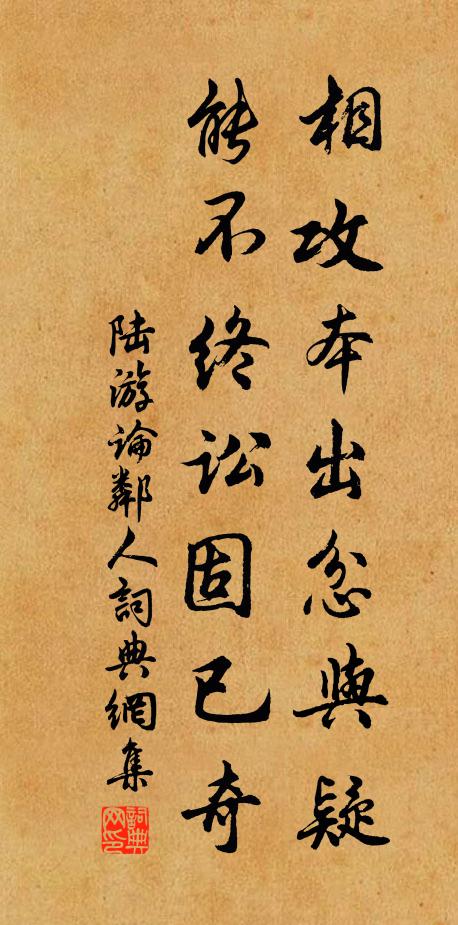 相攻本出忿與疑
能不終訟固已奇
陸游論鄰人詞典網集
詞典网印